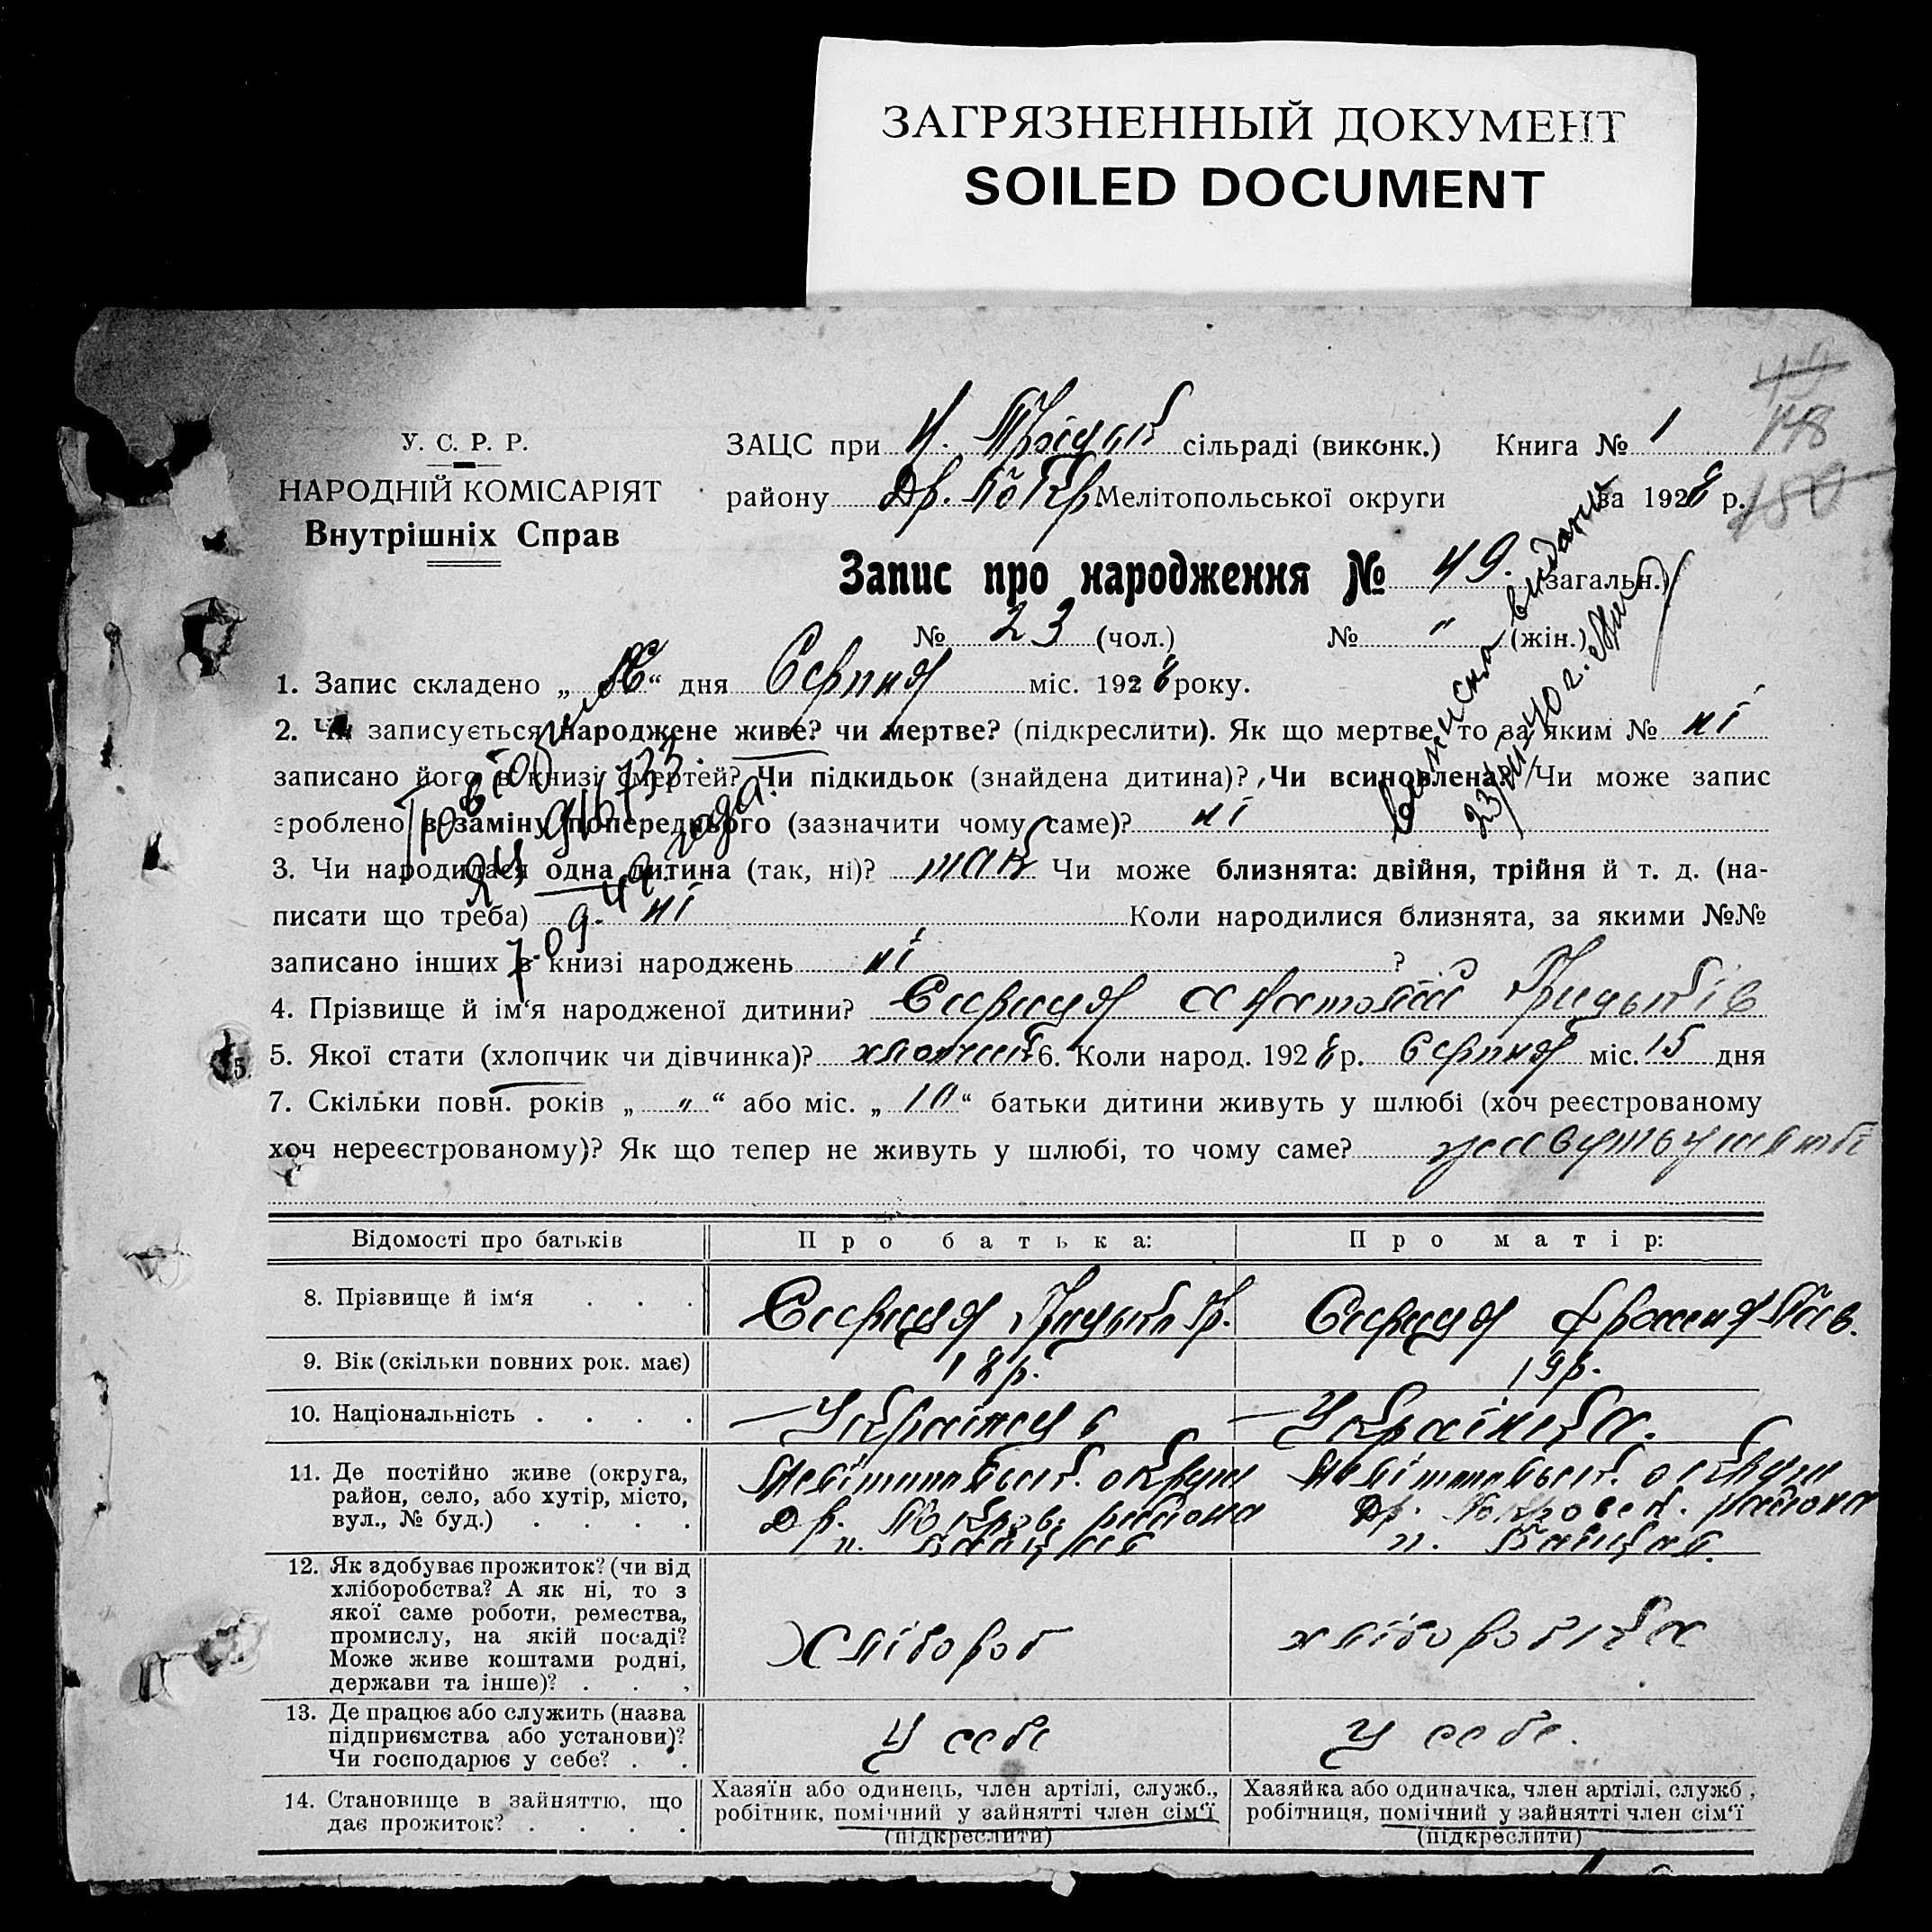 ЗАГРЯЗНЕННЫЙ ДОКУМЕНТ
SOILED DOCUMENT
49
148
150
У. С. Р. Р.
НАРОДНІЙ КОМІСАРІЯТ
Внутрішніх Справ
ЗАЦС при сільраді (виконк.) Книга № 1
району Др. Покр. Мелітопольської округи за 1928 р.
Запис про народження № 49. (загальн.)
№ 23 (чол.) № " (жін.)
1. Запис складено „ “ дня Серпня міс. 1928 року.
2. Чи записується народжене живе? чи мертве? (підкреслити). Як що мертве, то за яким № ні
записано його в книзі смертей? Чи підкидьок (знайдена дитина)? Чи всиновлена? Чи може запис
зроблено в заміну попереднього (зазначити чому саме)? ні
3. Чи народилася одна дитина (так, ні)? так Чи може близнята: двійня, трійня й т. д. (на-
писати що треба) ні Коли народилися близнята, за якими №№
записано інших в книзі народжень ні ?
4. Прізвище й ім‘я народженої дитини? Анатолій
5. Якої стати (хлопчик чи дівчинка)? хлопчик 6. Коли народ. 1928 р. Серпня міс. 15 дня
7. Скільки повн. років „ " “ або міс. „ 10 “ батьки дитини живуть у шлюбі (хоч реєстрованому
хоч нереєстрованому)? Як що тепер не живуть у шлюбі, то чому саме? живуть у шлюбі
Виписка видана
23/ 40 г.
Відомості про батьків
Про батька:
Про матір:
8. Прізвище й ім‘я . . .
9. Вік (скільки повних рок. має)
18 р.
19 р.
10. Національність . . . .
Українець
Українка.
11. Де постійно живе (округа,
район, село, або хутір, місто,
вул., № буд.) . . . .
Мелітопольськ. округи
Др. Покров. района
Мелітопольськ. округи
Др. Покровск. района
12. Як здобуває прожиток? (чи від
хліборобства? А як ні, то з
якої саме роботи, ремества,
промислу, на якій посаді?
Може живе коштами родні,
держави та інше)? . . .
Хлібороб
хліборобка
13. Де працює або служить (назва
підприємства або установи)?
Чи господарює у себе? . .
У себе
У себе.
14. Становище в зайняттю, що
дає прожиток? . . . .
Хазяїн або одинець, член артілі, служб.,
робітник, помічний у зайнятті член сім‘ї
(підкреслити)
Хазяйка або одиначка, член артілі, служб.,
робітниця, помічний у зайнятті член сім‘ї
(підкреслити)